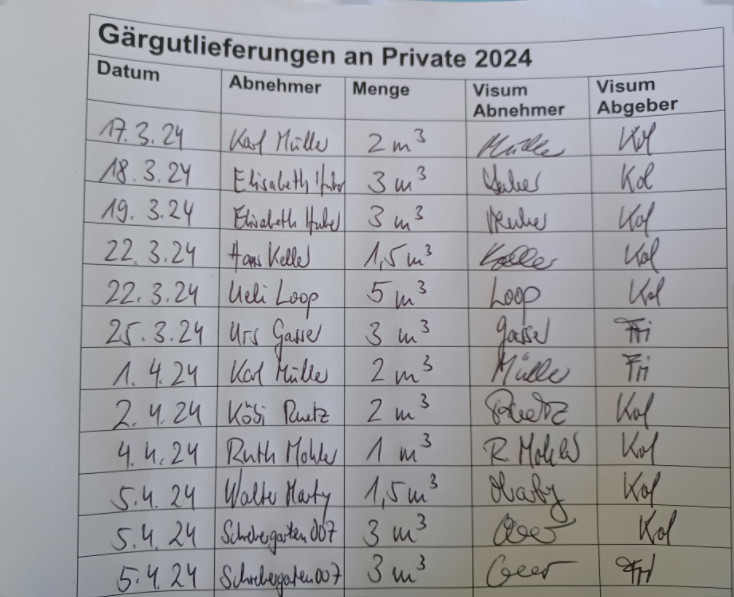 Gärgutlieferungen an Private 2024
Datum Abnehmer Menge Visum Abnehmer Visum Abgeber
17.3.24 Karl Müller 2 m³ Müller Kol
18.3.24 Elisabeth Huber 3 m³ Huber Kol
19.3.24 Elisabeth Huber 3 m³ Huber Kol
22.3.24 Hans Keller 1,5 m³ Keller Kol
22.3.24 Ueli Loop 5 m³ Loop Kol
25.3.24 Urs Gasser 3 m³ Gasser Fri
1.4.24 Karl Müller 2 m³ Müller Fri
2.4.24 Köbi Ruetz 2 m³ Ruetz Kol
4.4.24 Ruth Mohler 1 m³ R Mohler Kol
5.4.24 Walter Marty 1,5 m³ Marty Kol
5.4.24 Schrebergarten 007 3 m³ Kol
5.4.24 Schrebergarten 007 3 m³ Fri